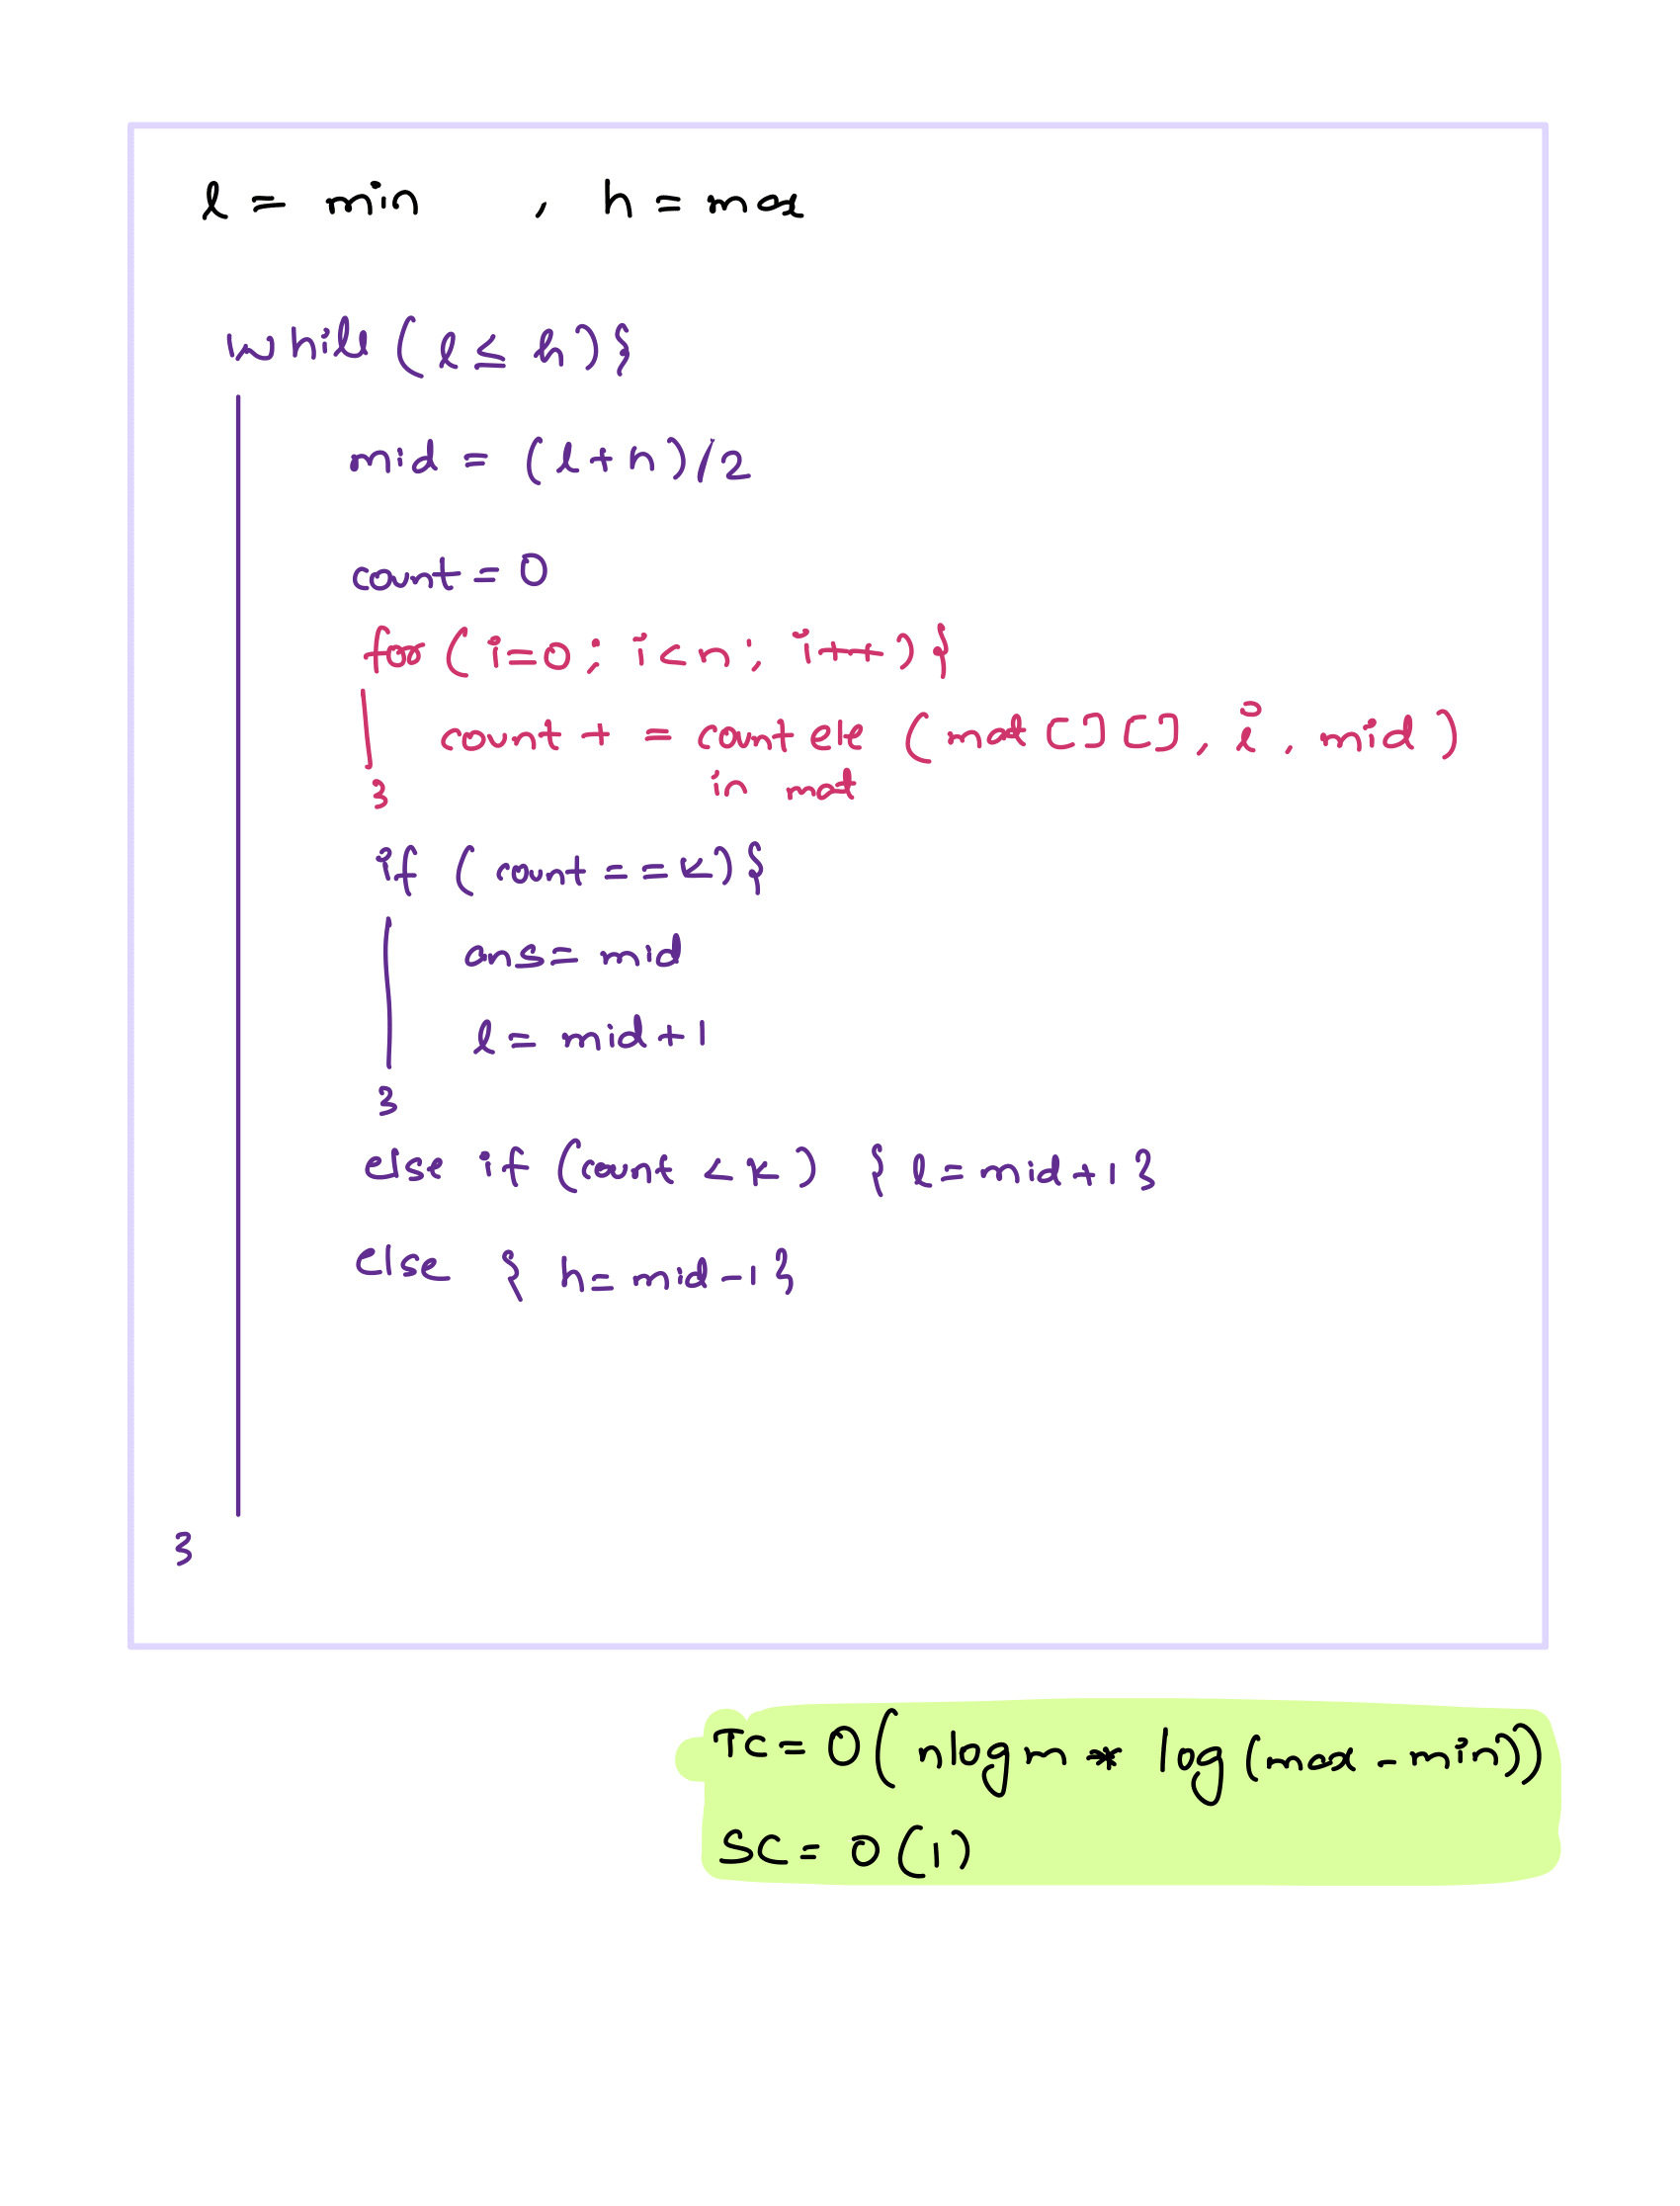 l = min , h = max
while (l ≤ h) {
mid = (l+h)/2
count = 0
for (i=0; i<n; i++) {
count + = count ele (mat [] [], i, mid)
in mat
}
if (count == k) {
ans = mid
l = mid+1
}
else if (count < k) { l = mid+1 }
else { h = mid-1 }
}
TC = O(nlogm * log(max - min))
SC = O(1)